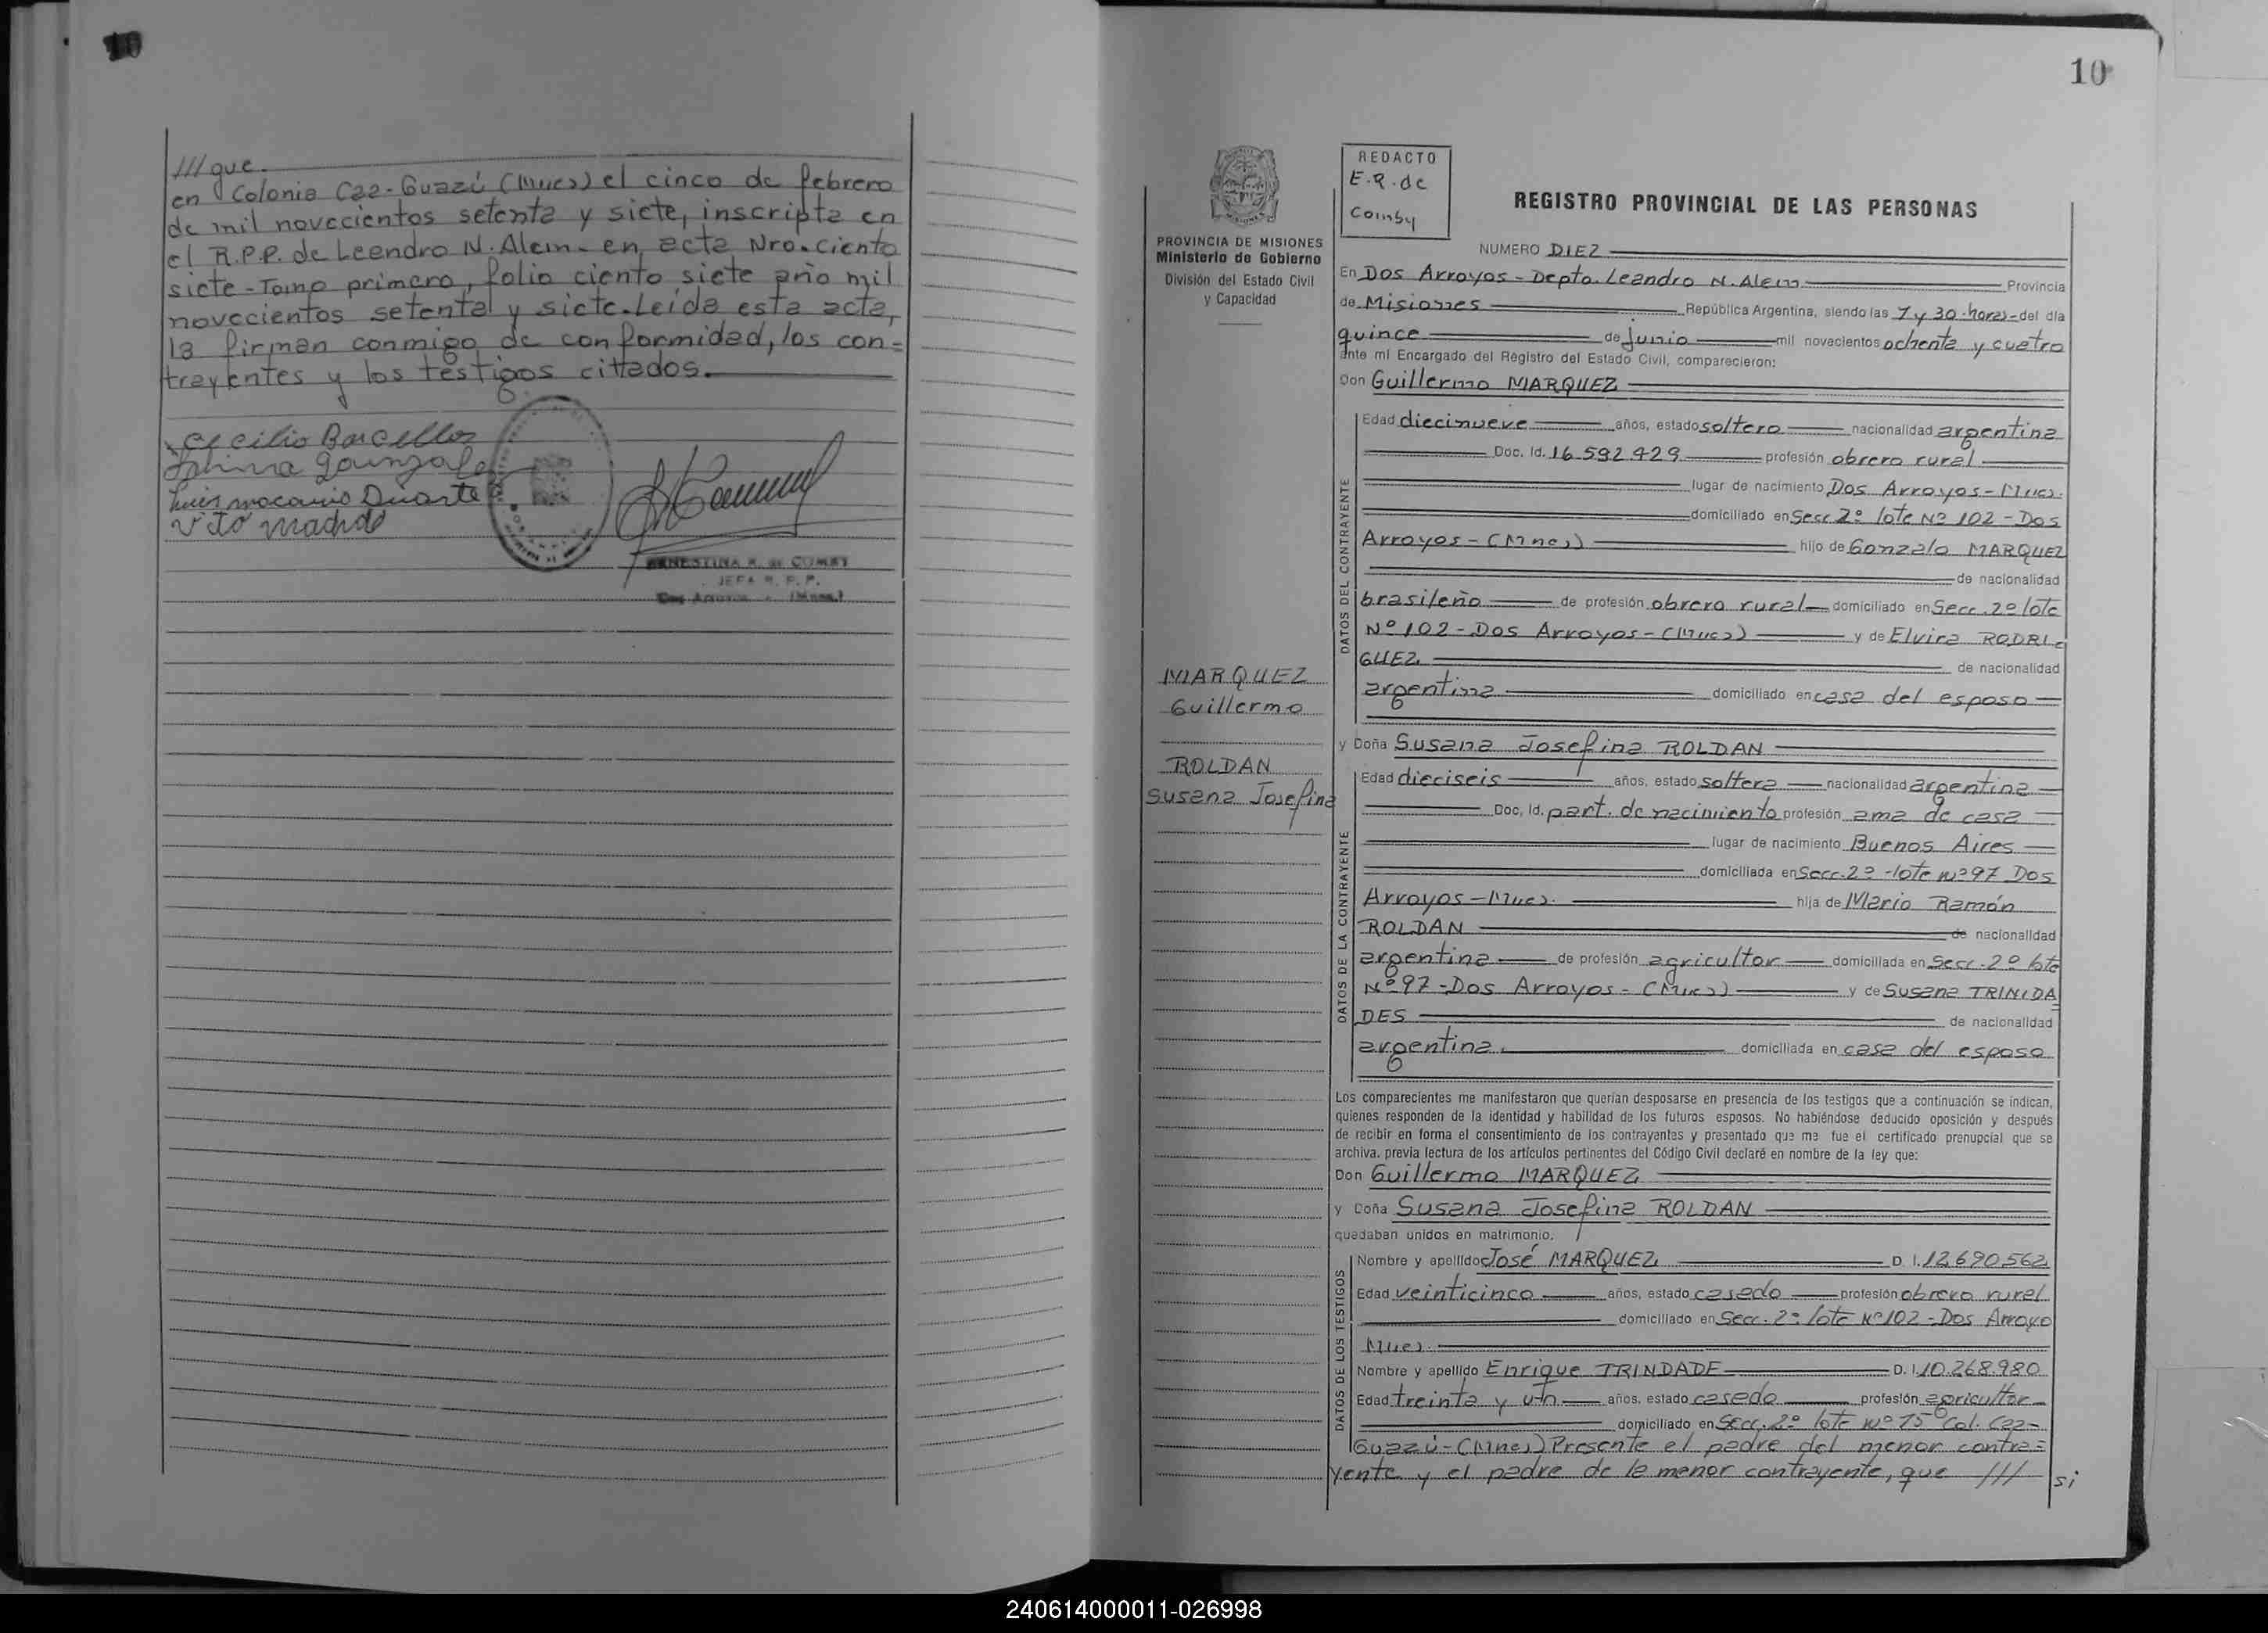 10
/// que.
en Colonia Caa-Guazú (Mnes) el cinco de febrero
de mil novecientos setenta y siete, inscripta en
el R.P.P. de Leandro N. Alem. en acta Nro. ciento
siete - Tomo primero, folio ciento siete año mil
novecientos setenta y siete. Leída esta acta,
la firman conmigo de conformidad, los con=
trayentes y los testigos citados.
Cecilio Barcellos
Luis macario Duarte
Vito machdo
ERNESTINA R. de COMBY
JEFA R. P. P.
Dos Arroyos - (Mnes.)
10
PROVINCIA DE MISIONES
Ministerio de Gobierno
División del Estado Civil
y Capacidad
REDACTO
E.R. de
Comby
REGISTRO PROVINCIAL DE LAS PERSONAS
NUMERO DIEZ
En Dos Arroyos - Depto. Leandro N. Alem Provincia
de Misiones República Argentina, siendo las 7 y 30 horas del día
quince de junio mil novecientos ochenta y cuatro
ante mí Encargado del Registro del Estado Civil, comparecieron:
Don Guillermo MARQUEZ
DATOS DEL CONTRAYENTE
Edad diecinueve años, estado soltero nacionalidad argentina
Doc. Id. 16.592.429 profesión obrero rural
lugar de nacimiento Dos Arroyos - Mnes.
domiciliado en Secc. 2º lote Nº 102 - Dos
Arroyos - (Mnes) hijo de Gonzalo MARQUEZ
de nacionalidad
brasileño de profesión obrero rural domiciliado en Secc. 2º lote
Nº 102 - Dos Arroyos - (Mnes) y de Elvira RODRI=
GUEZ de nacionalidad
argentina domiciliado en casa del esposo
MARQUEZ
Guillermo
ROLDAN
Susana Josefina
y Doña Susana Josefina ROLDAN
DATOS DE LA CONTRAYENTE
Edad dieciseis años, estado soltera nacionalidad argentina
Doc. Id. part. de nacimiento profesión ama de casa
lugar de nacimiento Buenos Aires
domiciliada en Secc. 2º - lote nº 97 Dos
Arroyos - Mnes. hija de Mario Ramón
ROLDAN de nacionalidad
argentina de profesión agricultor domiciliada en Secc. 2º lote
Nº 97 - Dos Arroyos - (Mnes) y de Susana TRINIDA
DES de nacionalidad
argentina. domiciliada en casa del esposo
Los comparecientes me manifestaron que querían desposarse en presencia de los testigos que a continuación se indican,
quienes responden de la identidad y habilidad de los futuros esposos. No habiéndose deducido oposición y después
de recibir en forma el consentimiento de los contrayentes y presentado que me fue el certificado prenupcial que se
archiva. previa lectura de los artículos pertinentes del Código Civil declaré en nombre de la ley que:
Don Guillermo MARQUEZ
y Doña Susana Josefina ROLDAN
quedaban unidos en matrimonio.
DATOS DE LOS TESTIGOS
Nombre y apellido José MARQUEZ D. I. 12.690.562
Edad veinticinco años, estado casado profesión obrero rural
domiciliado en Secc. 2º lote Nº 102 - Dos Arroyo
Mnes.
Nombre y apellido Enrique TRINDADE D. I. 10.268.980
Edad treinta y un años, estado casado profesión agricultor
domiciliado en Secc. 2º lote Nº 75 Col. Caa-
Guazú - (Mnes) Presente el padre del menor contra=
yente y el padre de la menor contrayente, que /// si
240614000011-026998